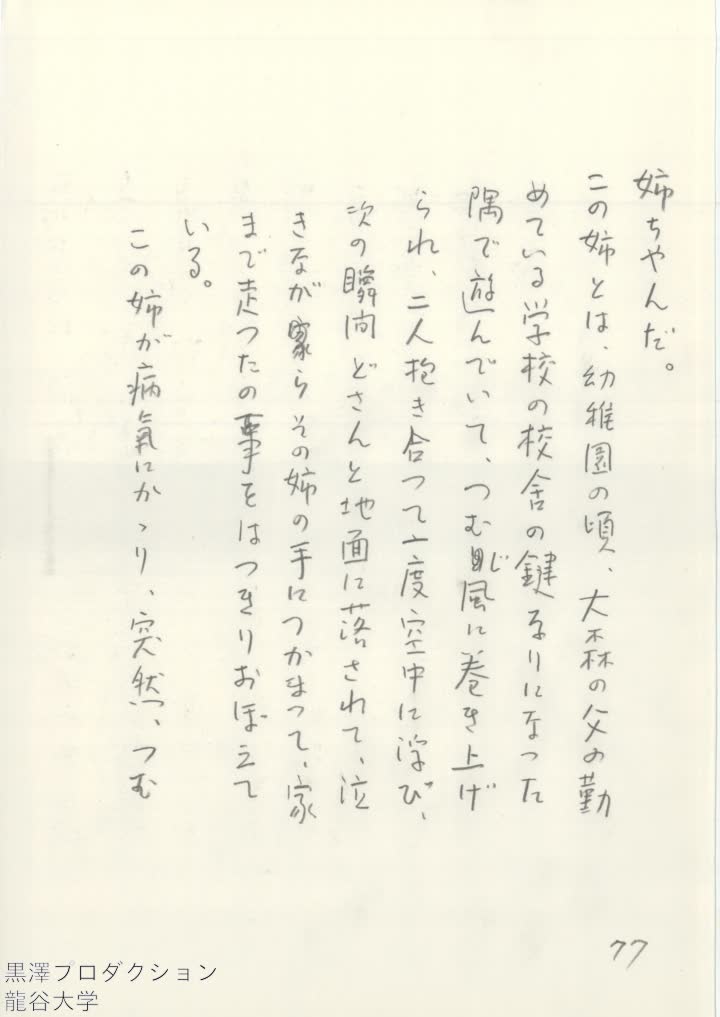 姉ちやんだ。
この姉とは、幼稚園の頃、大森の父の勤
めている学校の校舎の鍵なりになった
隅で遊んでいて、つむじ風に巻き上げ
られ、二人抱き合つて一度空中に浮び、
次の瞬間どさんと地面に落されて、泣
きながらその姉の手につかまって、家
まで走つたの事をはつきりおぼえて
いる。
この姉が病氣にかゝり、突然、つむ
77
黒澤プロダクション
龍谷大学